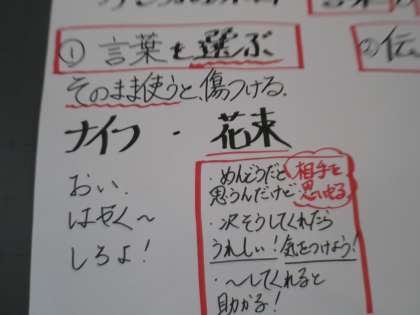 ① 言葉を選ぶ
②伝
そのまま使うと、傷つける。
ナイフ ・ 花束
おい、
はやく〜
しろよ！
・めんどうだと
思うんだけど
相手を
思いやる
・次そうしてくれたら
うれしい！気をつけよう！
・〜してくれると
助かる！